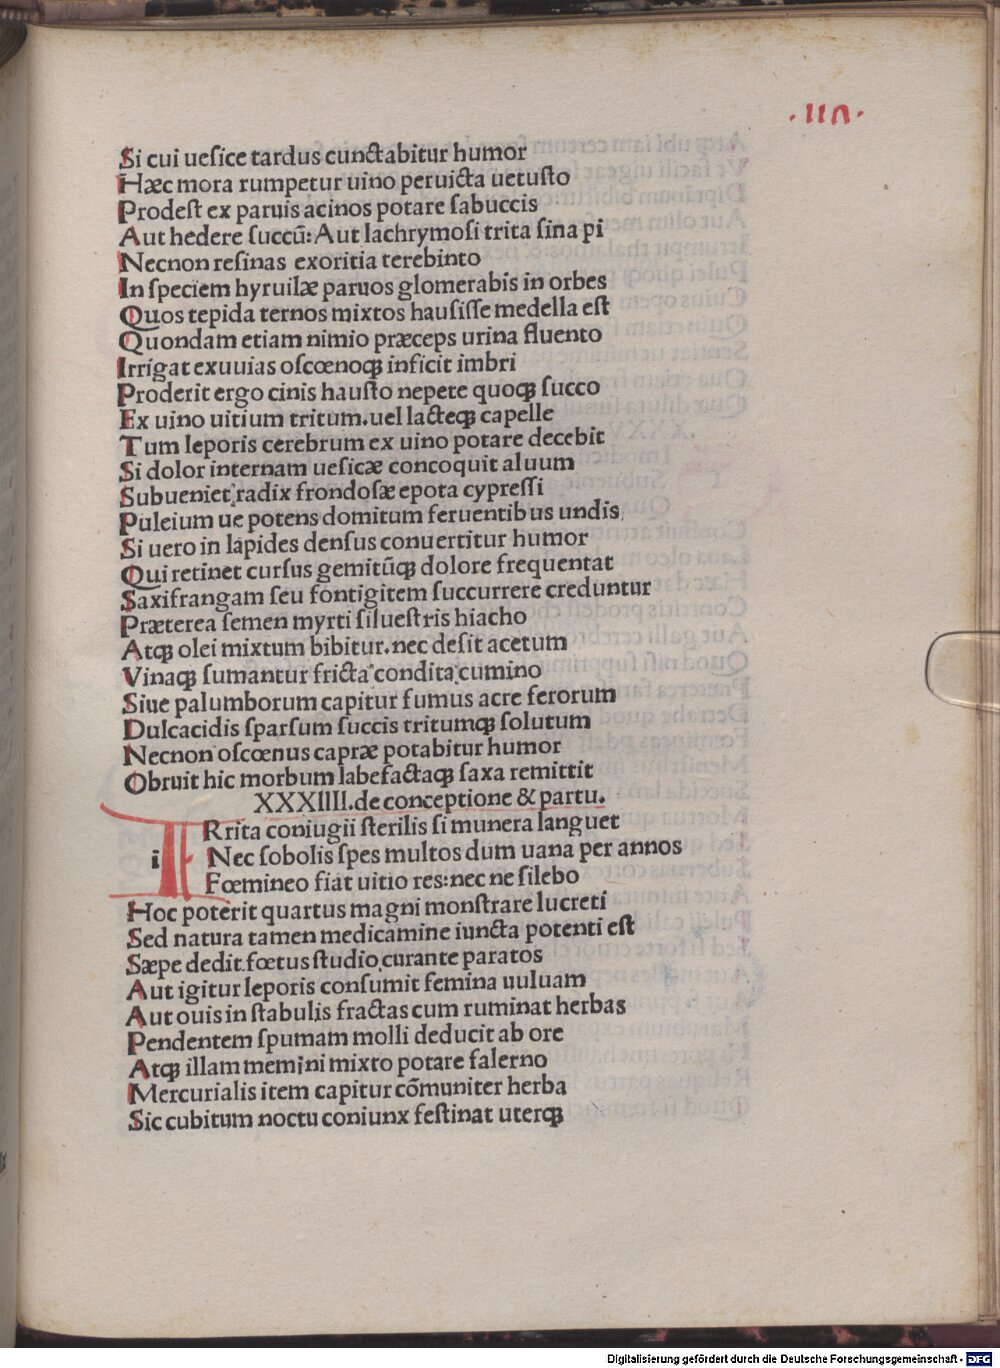 ·110·
Si cui uesice tardus cunctabitur humor
Hæc mora rumpetur uino peruicta uetusto
Prodest ex paruis acinos potare sabuccis
Aut hedere succū: Aut lachrymosi trita sina pi
Necnon resinas exoritia terebinto
In speciem hyruilæ paruos glomerabis in orbes
Quos tepida ternos mixtos hausisse medella est
Quondam etiam nimio præceps urina fluento
Irrigat exuuias oscœnoqꝫ inficit imbri
Proderit ergo cinis hausto nepete quoqꝫ succo
Ex uino uitium tritum.uel lacteqꝫ capelle
Tum leporis cerebrum ex uino potare decebit
Si dolor internam uesicæ concoquit aluum
Subueniet radix frondosæ epota cypressi
Puleium ue potens domitum feruentibus undis
Si uero in lapides densus conuertitur humor
Qui retinet cursus gemitūqꝫ dolore frequentat
Saxifrangam seu fontigitem succurrere creduntur
Præterea semen myrti siluestris hiacho
Atqꝫ olei mixtum bibitur.nec desit acetum
Vinaqꝫ sumantur fricta condita cumino
Siue palumborum capitur fumus acre ferorum
Dulcacidis sparsum succis tritumqꝫ solutum
Necnon oscœnus capræ potabitur humor
Obruit hic morbum labefactaqꝫ saxa remittit
XXXIIII.de conceptione & partu.
i Rrita coniugii sterilis si munera languet
Nec sobolis spes multos dum uana per annos
Fœmineo fiat uitio res:nec ne silebo
Hoc poterit quartus magni monstrare lucreti
Sed natura tamen medicamine iuncta potenti est
Sæpe dedit fœtus studio curante paratos
Aut igitur leporis consumit femina uuluam
Aut ouis in stabulis fractas cum ruminat herbas
Pendentem spumam molli deducit ab ore
Atqꝫ illam memini mixto potare falerno
Mercurialis item capitur cōmuniter herba
Sic cubitum noctu coniunx festinat uterqꝫ
Digitalisierung gefördert durch die Deutsche Forschungsgemeinschaft - DFG